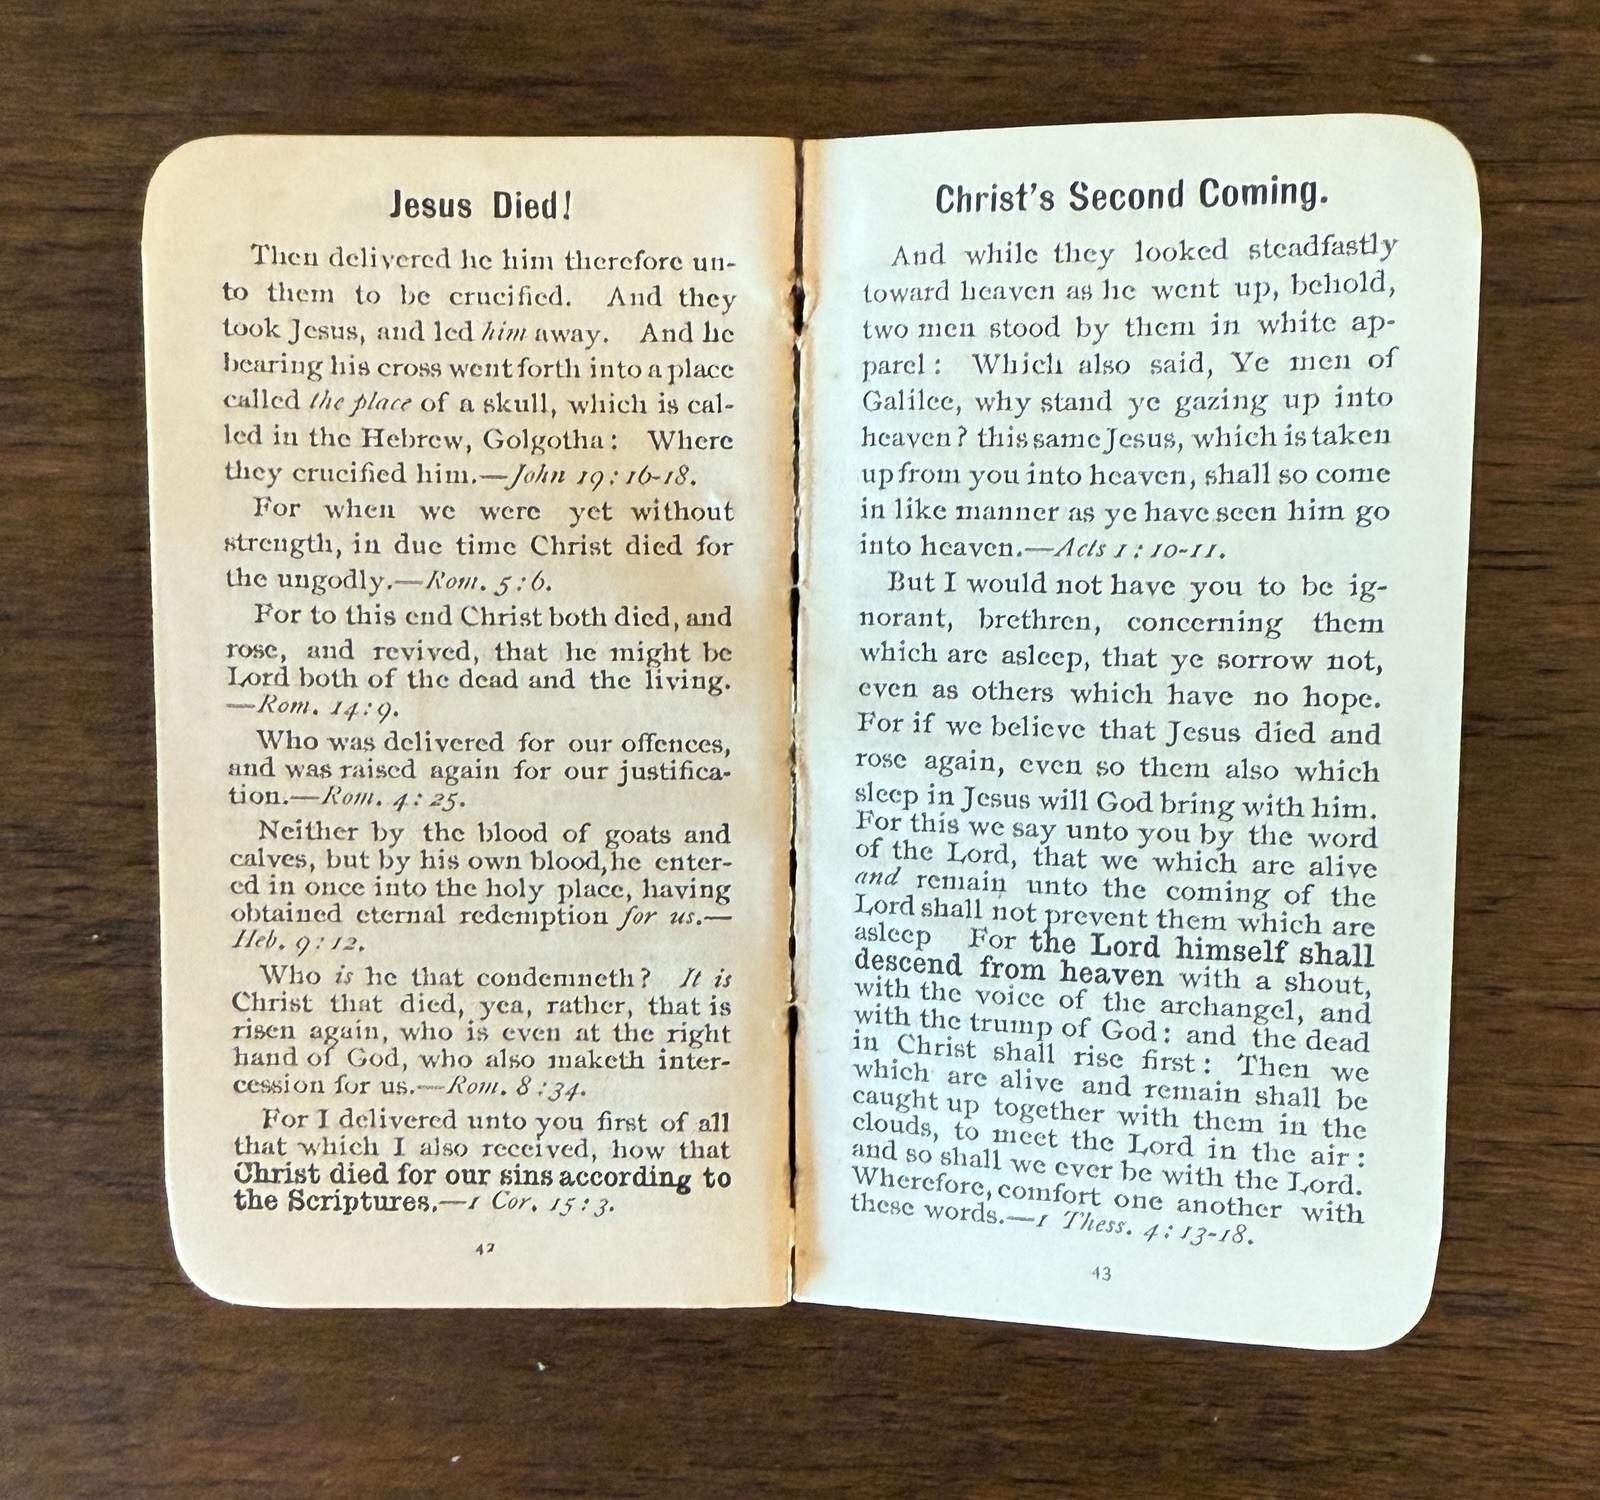 Jesus Died!
Then delivered he him therefore un-
to them to be crucified. And they
took Jesus, and led him away. And he
bearing his cross went forth into a place
called the place of a skull, which is cal-
led in the Hebrew, Golgotha: Where
they crucified him.—John 19:16-18.
For when we were yet without
strength, in due time Christ died for
the ungodly.—Rom. 5:6.
For to this end Christ both died, and
rose, and revived, that he might be
Lord both of the dead and the living.
—Rom. 14:9.
Who was delivered for our offences,
and was raised again for our justifica-
tion.—Rom. 4:25.
Neither by the blood of goats and
calves, but by his own blood, he enter-
ed in once into the holy place, having
obtained eternal redemption for us.—
Heb. 9:12.
Who is he that condemneth? It is
Christ that died, yea, rather, that is
risen again, who is even at the right
hand of God, who also maketh inter-
cession for us.—Rom. 8:34.
For I delivered unto you first of all
that which I also received, how that
Christ died for our sins according to
the Scriptures.—1 Cor. 15:3.
42
Christ's Second Coming.
And while they looked steadfastly
toward heaven as he went up, behold,
two men stood by them in white ap-
parel: Which also said, Ye men of
Galilee, why stand ye gazing up into
heaven? this same Jesus, which is taken
up from you into heaven, shall so come
in like manner as ye have seen him go
into heaven.—Acts 1:10-11.
But I would not have you to be ig-
norant, brethren, concerning them
which are asleep, that ye sorrow not,
even as others which have no hope.
For if we believe that Jesus died and
rose again, even so them also which
sleep in Jesus will God bring with him.
For this we say unto you by the word
of the Lord, that we which are alive
and remain unto the coming of the
Lord shall not prevent them which are
asleep For the Lord himself shall
descend from heaven with a shout,
with the voice of the archangel, and
with the trump of God: and the dead
in Christ shall rise first: Then we
which are alive and remain shall be
caught up together with them in the
clouds, to meet the Lord in the air:
and so shall we ever be with the Lord.
Wherefore, comfort one another with
these words.—1 Thess. 4:13-18.
43